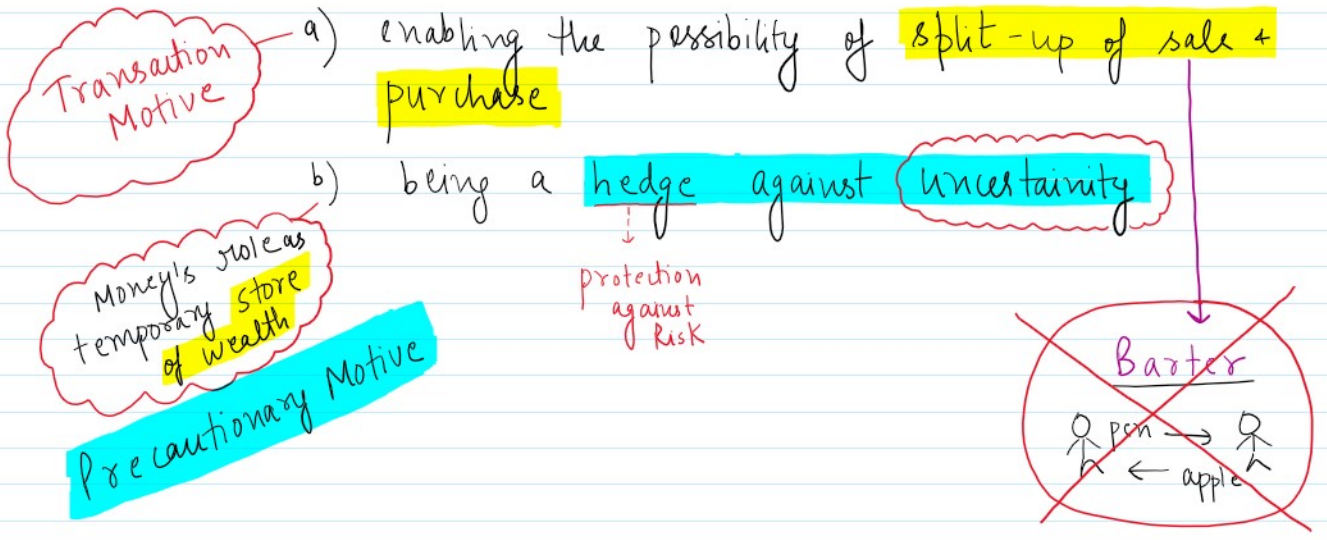 Transaction
Motive
a) enabling the possibility of split-up of sale +
purchase
b) being a hedge against uncertainity
protection
against
Risk
Money's role as
temporary store
of wealth
Precautionary Motive
Barter
pen →
← apple